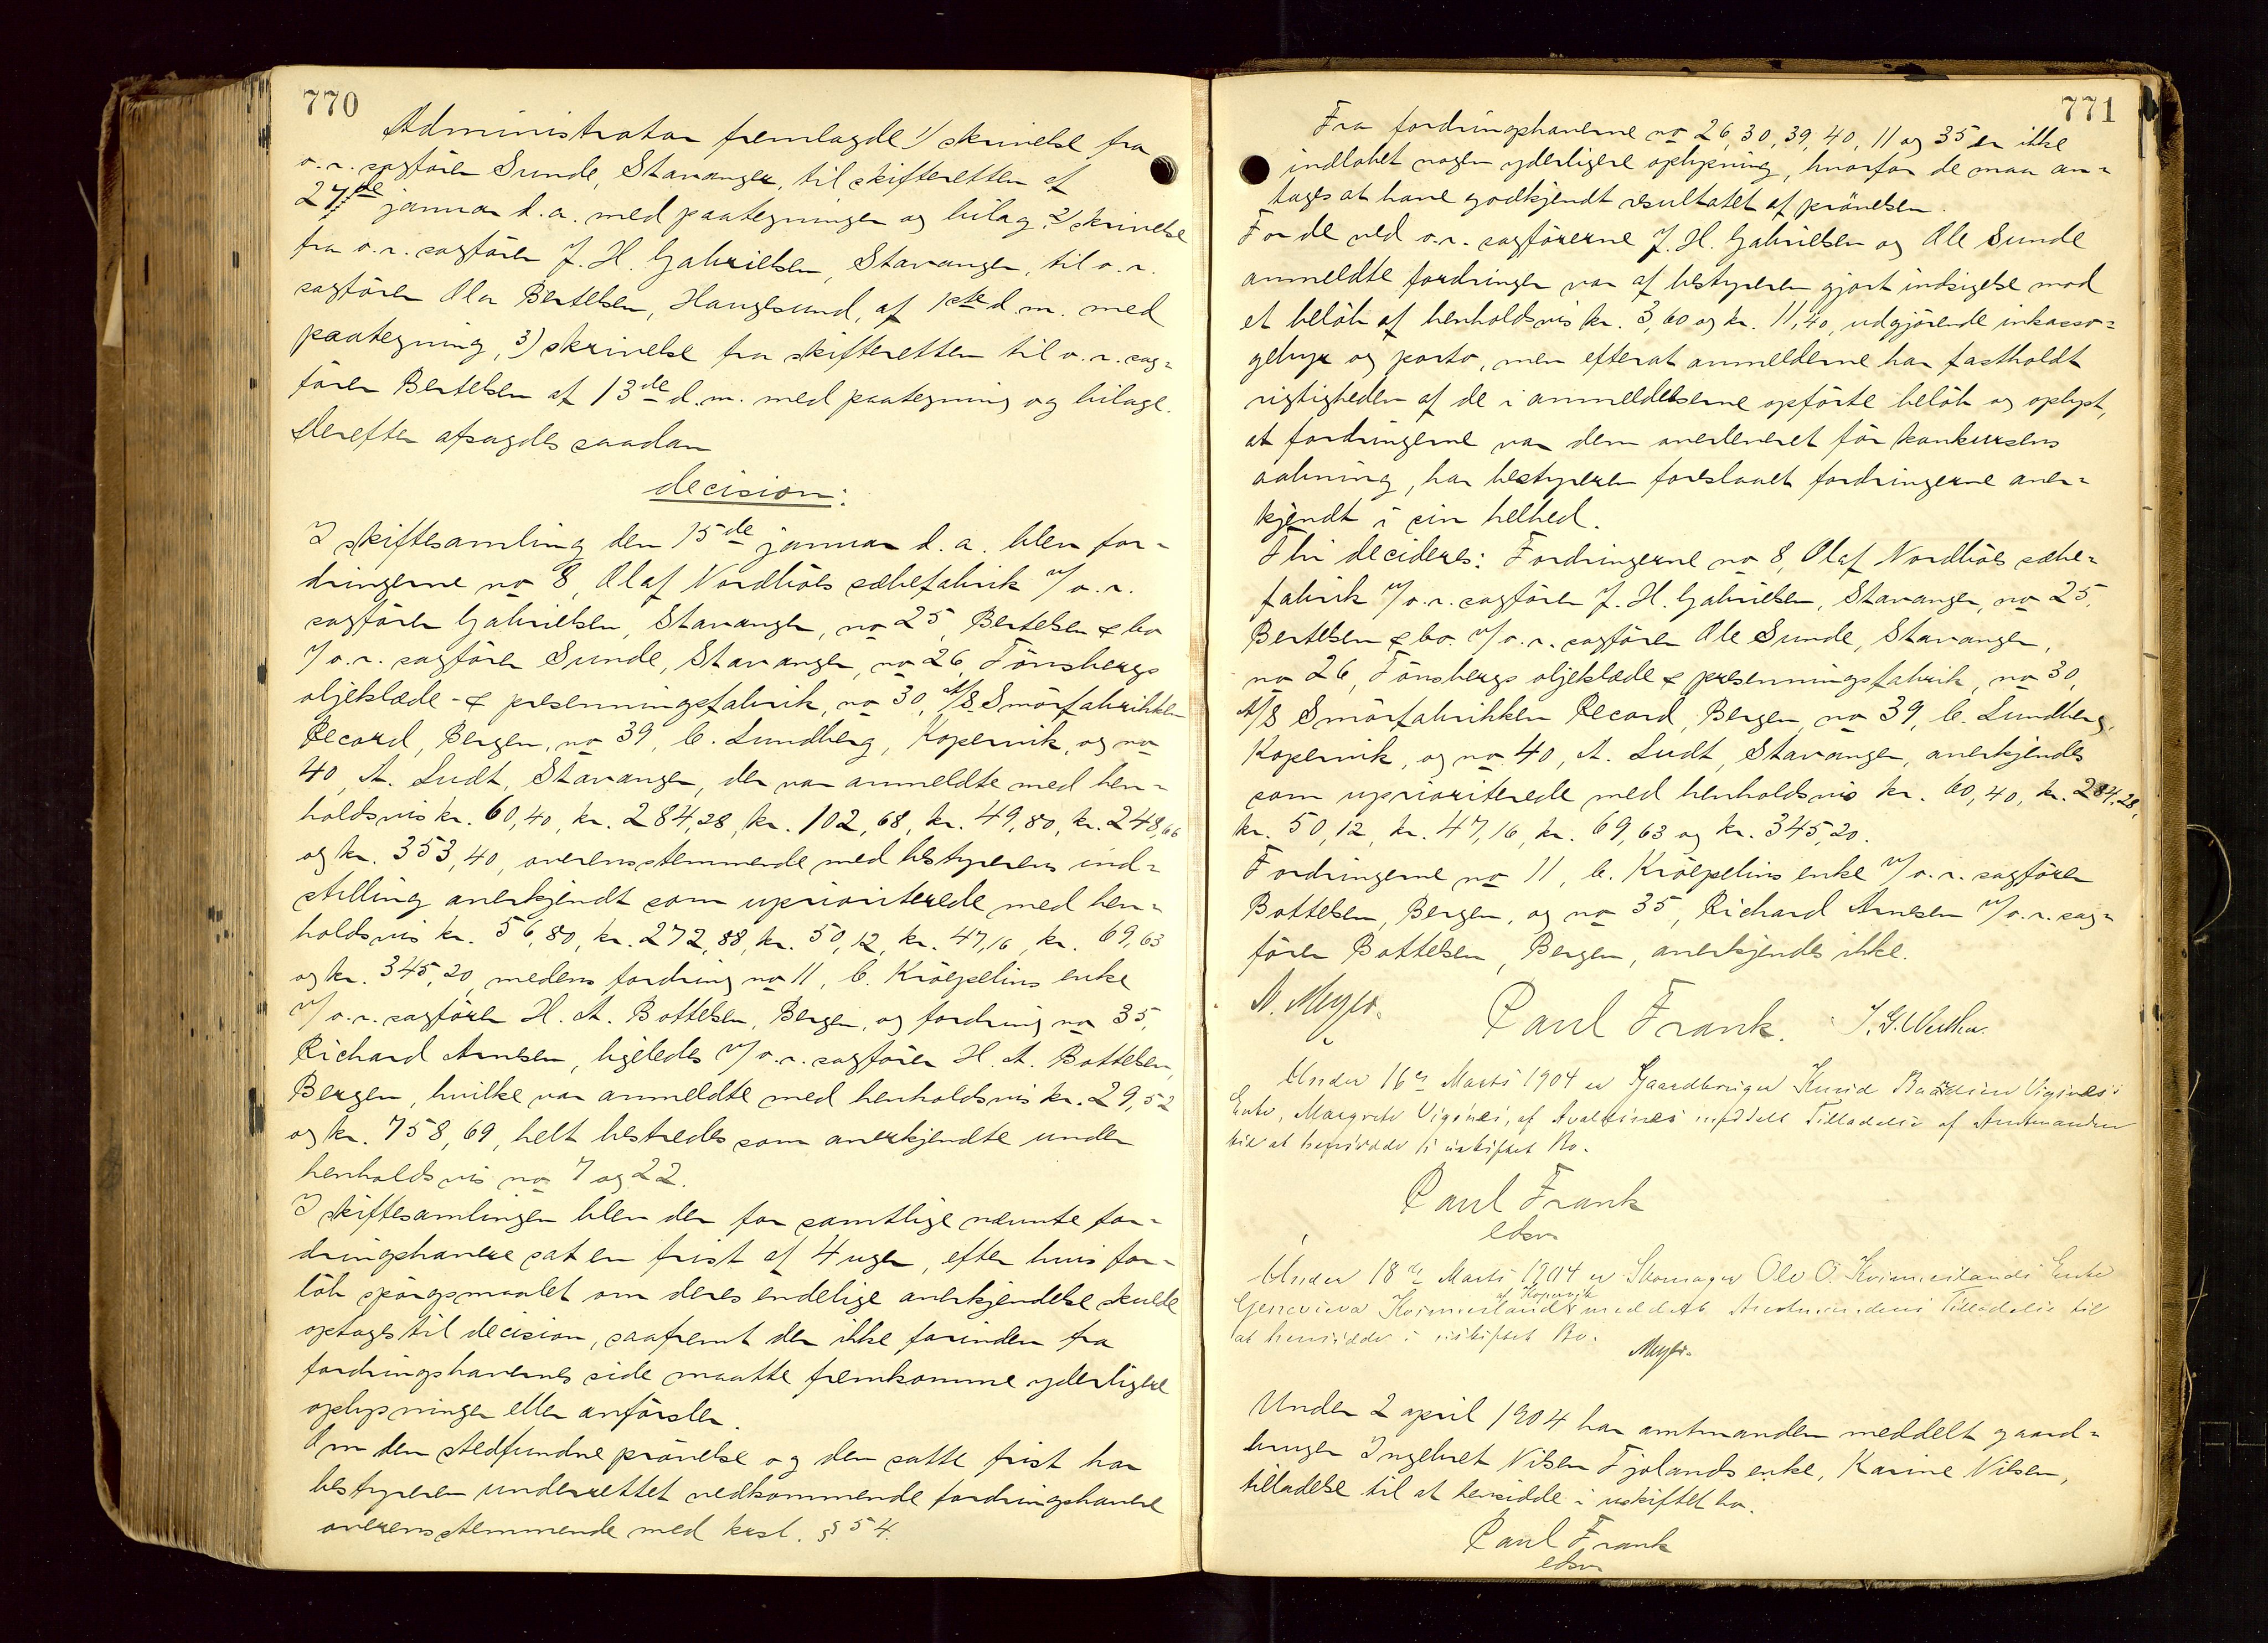 770
Administrator fremlagde 1) skrivelse fra
o.r.sagförer Sunde, Stavanger, til skifteretten af
27de januar d.a. med paategninger og bilag, 2) skrivelse
fra o.r. sagförer J. H. Gabrielsen, Stavanger, til o.r.
sagförer Ola Bertelsen, Haugesund, af 1ste d.m. med
paategning, 3) skrivelse fra skifteretten til o.r. sag=
förer Bertelsen af 13de d.m. med paategning og bilage.
Derefter afsagdes saadan
decision:
I skiftesamling den 15de januar d.a. blev for=
dringerne no 8, Olaf Nordböes sæbefabrik v/o.r.
sagförer Gabrielsen, Stavanger, no 25, Bertelsen & co
v/o.r. sagförer Sunde, Stavanger, no 26, Tönsbergs
oljeklæde- & presenningsfabrik, no 30, A/S Smörfabrikken
Record, Bergen, no 39, C. Lundberg, Kopervik, og no
40, A. Ludt, Stavanger, der var anmeldte med hen=
holdsvis kr. 60,40, kr. 284,28, kr. 102,68, kr. 49,80, kr. 248,66
og kr. 353,40, overensstemmende med bestyrerens ind=
stilling anerkjendt som uprioriterede med hen=
holdsvis kr. 56,80, kr. 272,88, kr. 50,12, kr. 47,16, kr. 69,63
og kr. 345,20, medens fordring no 11, C. Kröepelins enke
v/o.r. sagförer H. A. Bottelsen, Bergen, og fordring no 35,
Richard Arnesen, ligeledes v/o.r. sagförer H. A. Bottelsen,
Bergen, hvilke var anmeldte med henholdsvis kr. 29,52
og kr. 758,69, helt bestredes som anerkjendte under
henholdsvis no 7 og 22.
I skiftesamlingen blev der for samtlige nævnte for=
dringshavere sat en frist af 4 uger, efter hvis for=
löb spörgsmaalet om deres endelige anerkjendelse skulde
optages til decision, saafremt der ikke forinden fra
fordringshavernes side maatte fremkomme yderligere
oplysninger eller anförsler.
Om den stedfundne prövelse og den satte frist har
bestyreren underrettet vedkommende fordringshavere
overensstemmende med krsl. § 54.
771
Fra fordringshaverne no 26, 30, 39, 40, 11 og 35 er ikke
indlöbet nogen yderligere oplysning, hvorfor de maa an=
tages at have godkjendt resultatet af prövelsen.
For de ved o.r. sagförerne J. H. Gabrielsen og Ole Sunde
anmeldte fordringer var af bestyreren gjort indsigelse mod
et belöb af henholdsvis kr. 3,60 og kr. 11,40, udgjörende inkasso=
gebyr og porto, men efterat anmelderne har fastholdt
rigtigheden af de i anmeldelserne opförte belöb og oplyst,
at fordringerne var dem overleveret för konkursens
aabning, har bestyreren foreslaaet fordringerne aner=
kjendt i sin helhed.
Thi decideres: Fordringerne no 8, Olaf Nordböes sæbe=
fabrik v/o.r. sagförer J. H. Gabrielsen, Stavanger, no 25,
Bertelsen & co. v/o.r. sagförer Ole Sunde, Stavanger,
no 26, Tönsbergs oljeklæde & presenningsfabrik, no 30,
A/S Smörfabrikken Record, Bergen, no 39, C. Lundberg,
Kopervik, og no 40, A. Ludt, Stavanger, anerkjendes
som uprioriterede med henholdsvis kr. 60,40, kr. 284,28,
kr. 50,12, kr. 47,16, kr. 69,63 og kr. 345,20.
Fordringerne no 11, C. Kröepelins enke v/o.r. sagförer
Bottelsen, Bergen, og no 35, Richard Arnesen v/o.r. sag=
förer Bottelsen, Bergen, anerkjendes ikke.
N. Meyer. Paul Frank.
Under 16de Marts 1904 er Gaardbruger Knud
Enke, Margrete af meddelt Tilladelse af Amtmanden
til at hensidde i uskiftet Bo.
Paul Frank
edsv
Under 18de Marts 1904 er Skomager Ole O. Enke
af Kopervik
meddelt Amtmandens Tilladelse til
at hensidde i uskiftet Bo.
Meyer.
Under 2 april 1904 har amtmanden meddelt gaard=
bruger Ingebret Nilsen Fjolands enke, Karine Nilsen,
tilladelse til at hensidde i uskiftet bo.
Paul Frank
edsv